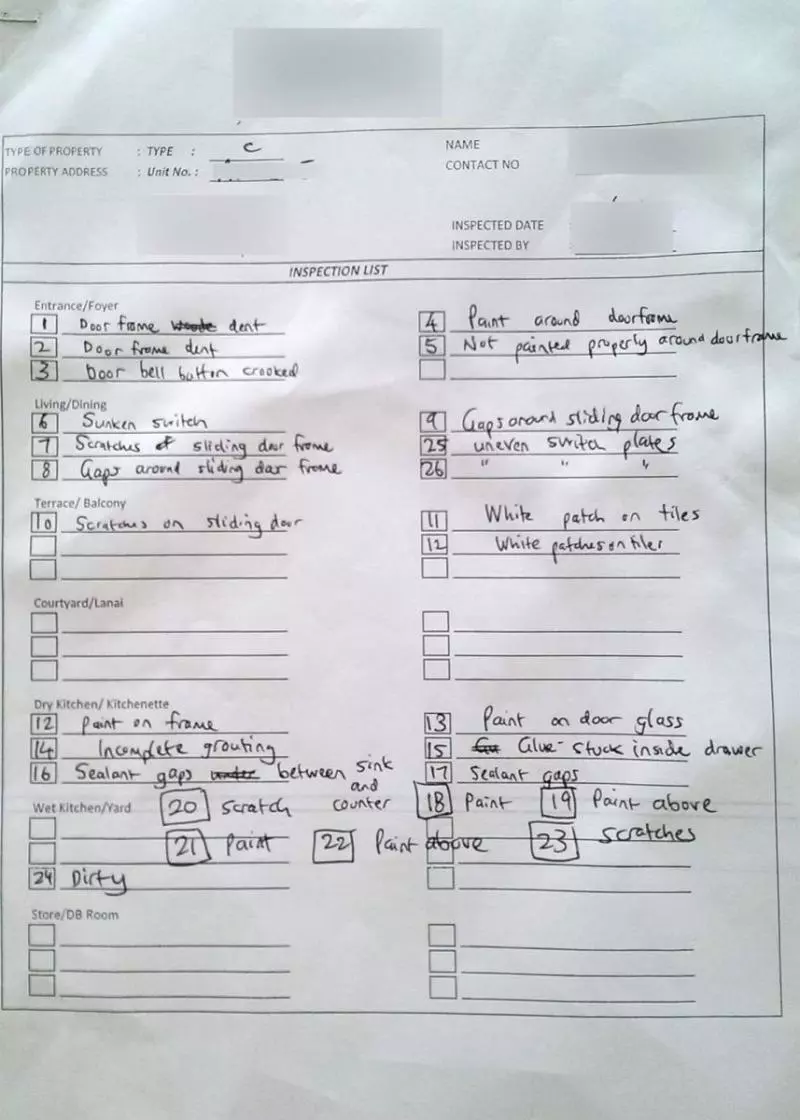 TYPE OF PROPERTY : TYPE : C
PROPERTY ADDRESS : Unit No. :
NAME
CONTACT NO
INSPECTED DATE
INSPECTED BY
INSPECTION LIST
Entrance/Foyer
1 Door frame dent
2 Door frame dent
3 Door bell button crooked
4 Paint around doorframe
5 Not painted properly around doorframe
Living/Dining
6 Sunken switch
7 Scratches of sliding door frame
8 Gaps around sliding door frame
9 Gaps around sliding door frame
25 uneven switch plates
26 " " "
Terrace/ Balcony
10 Scratches on sliding door
11 White patch on tiles
12 White patches on tiles
Courtyard/Lanai
Dry Kitchen/ Kitchenette
12 Paint on frame
14 Incomplete grouting
16 Sealant gaps between sink
and
counter
13 Paint on door glass
15 Glue stuck inside drawer
17 Sealant gaps
Wet Kitchen/Yard
20 scratch
18 Paint
19 Paint above
21 Paint
22 Paint above
23 scratches
24 Dirty
Store/DB Room